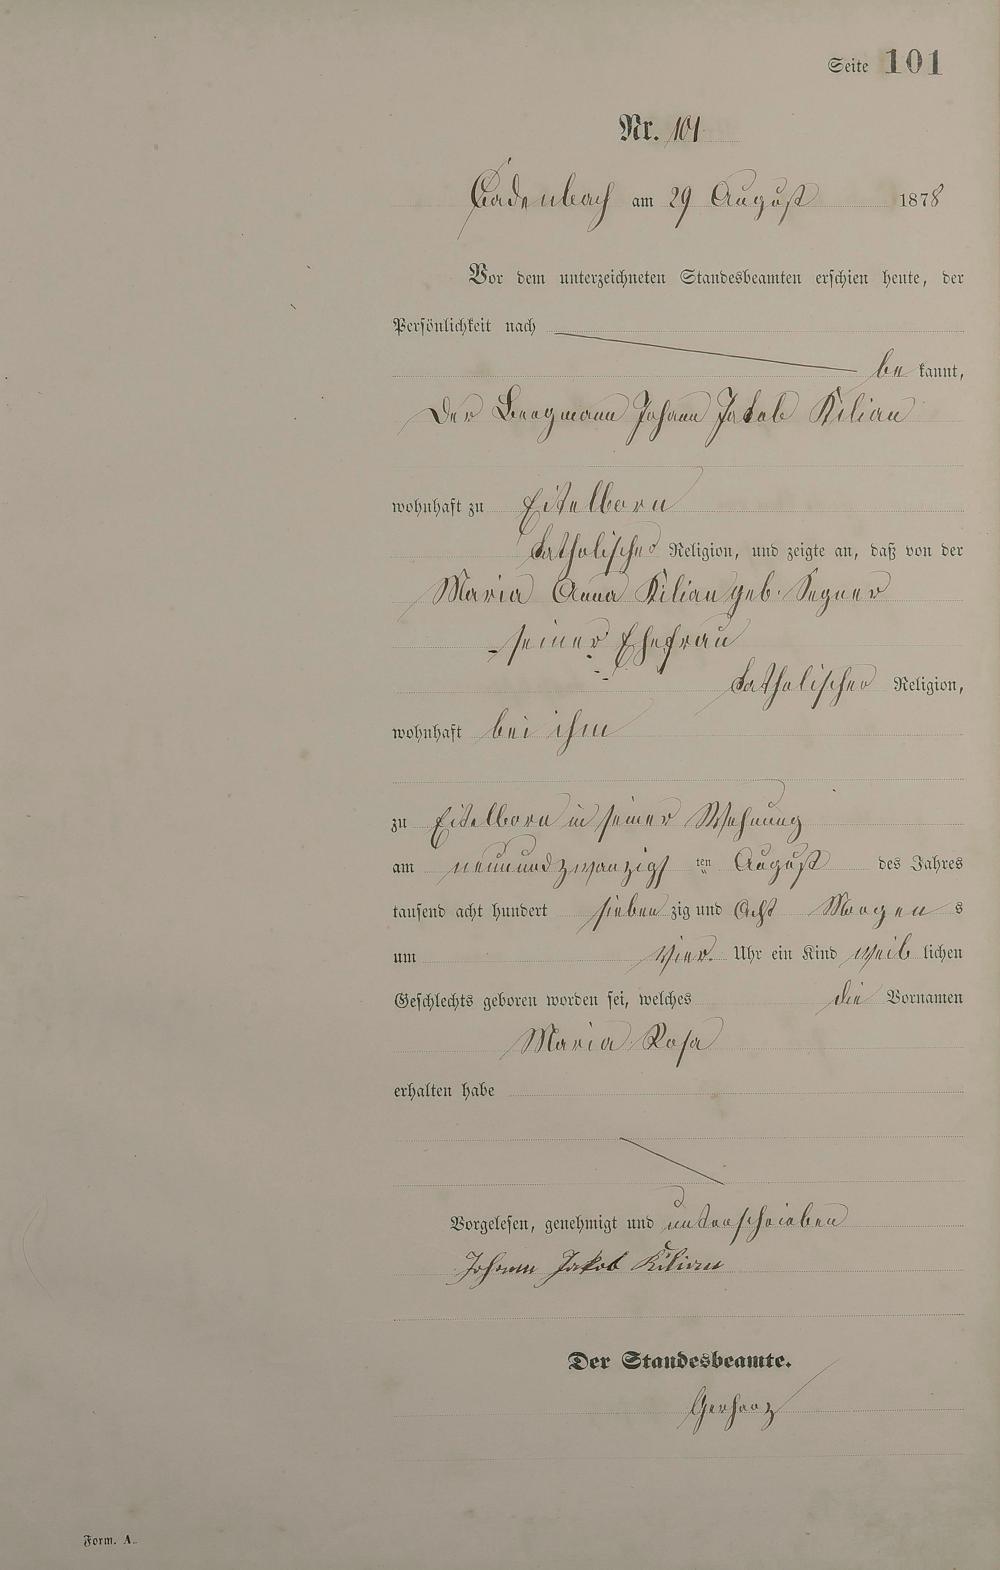 Seite 101
Nr. 101
Cadenbach am 29 August 1878
Vor dem unterzeichneten Standesbeamten erschien heute, der
Persönlichkeit nach
be kannt,
Der Bergmann Johann Jakob Kilian
wohnhaft zu Eitelborn
katholischer Religion, und zeigte an, daß von der
Maria Anna Kilian geb. Segner
seiner Ehefrau
katholischer Religion,
wohnhaft bei ihm
zu Eitelborn in seiner Wohnung
am neunundzwanzigs ten August des Jahres
tausend acht hundert sieben zig und Acht Morgen s
um Vier Uhr ein Kind weib lichen
Geschlechts geboren worden sei, welches die Vornamen
Maria Rosa
erhalten habe
Vorgelesen, genehmigt und unterschrieben
Johann Jakob Kilian
Der Standesbeamte.
Gerharz
Form. A.